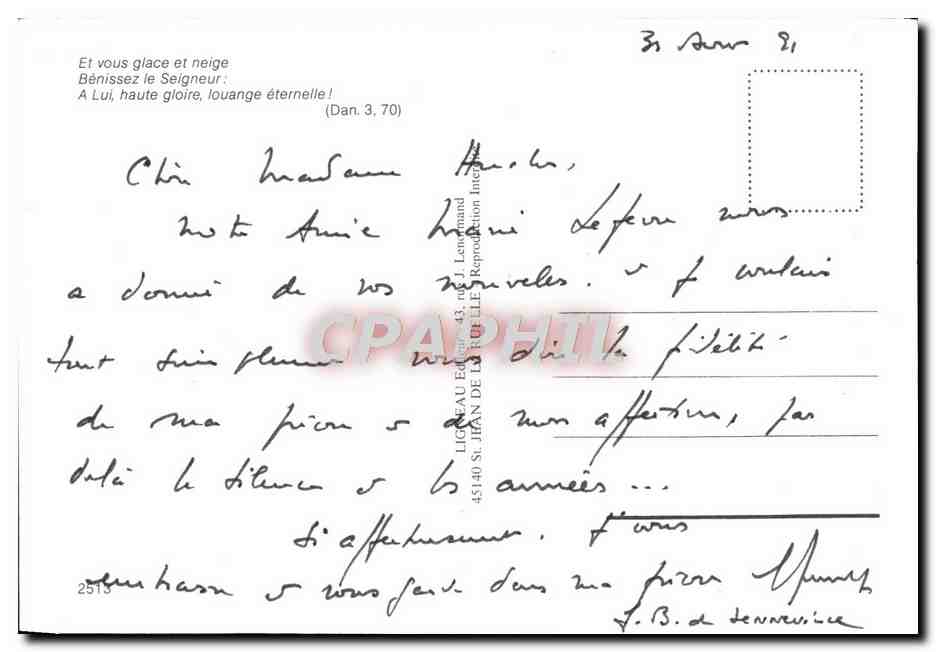 31
Et vous glace et neige
Bénissez le Seigneur :
A Lui, haute gloire, louange éternelle !
(Dan. 3, 70)
Chère Madame
notre Amie Marie Lefevre nous
a donné de vos nouvelles. Je voulais
tout simplement vous dire la fidélité
de ma prière et de mon affection, par
delà le silence et les années ...
Si affectueusement. Je vous
embrasse et vous garde dans ma prière
J. B. de
LIGNEAU Editeur 43, rue J. Lenormand
45140 St. JEAN DE LA RUELLE Reproduction
CPAPHIL
2513